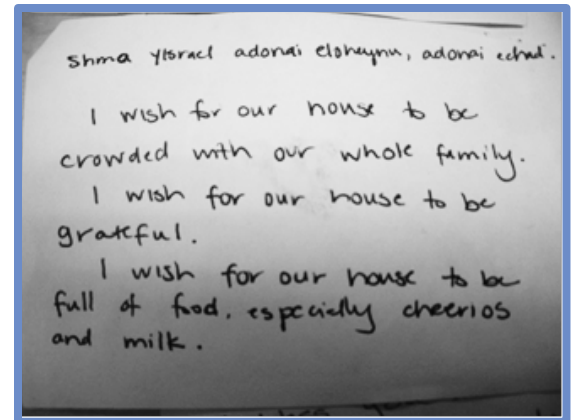 Shma Yisrael adonai eloheynu, adonai echad.
I wish for our house to be
crowded with our whole family.
I wish for our house to be
grateful.
I wish for our house to be
full of food, especially cheerios
and milk.